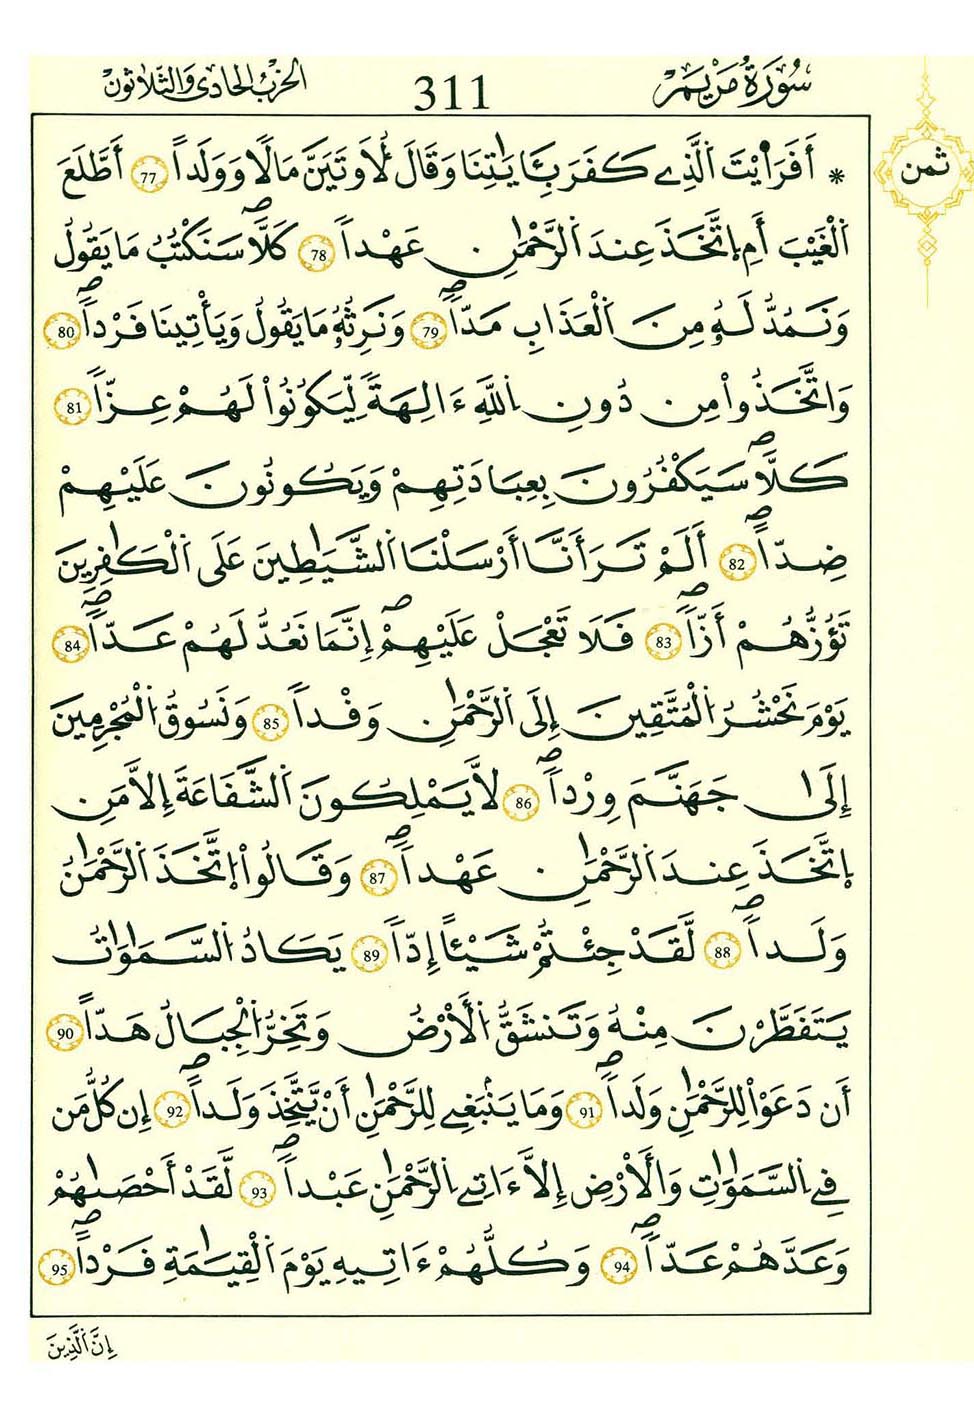 سُورَةُ مَرْيَمَ 311 الحِزْبُ الحَادِي وَالثَّلَاثُونَ
ثمن
* أَفَرَٰيْتَ اَلَّذِے كَفَرَ بِـَٔايَٰتِنَا وَقَالَ لَأُوتَيَنَّ مَالًا وَوَلَداًۖ 77 أَطَّلَعَ
اَلْغَيْبَ أَمِ اِتَّخَذَ عِندَ اَلرَّحْمَٰنِ عَهْداًۖ 78 كَلَّاۖ سَنَكْتُبُ مَا يَقُولُ
وَنَمُدُّ لَهُۥ مِنَ اَلْعَذَابِ مَدّاًۖ 79 وَنَرِثُهُۥ مَا يَقُولُ وَيَأْتِينَا فَرْداًۖ 80
وَاتَّخَذُواْ مِن دُونِ اِللَّهِ ءَالِهَةً لِّيَكُونُواْ لَهُمْ عِزّاً 81
كَلَّاۖ سَيَكْفُرُونَ بِعِبَادَتِهِمْ وَيَكُونُونَ عَلَيْهِمْ
ضِدّاًۖ 82 أَلَمْ تَرَ أَنَّا أَرْسَلْنَا اَلشَّيَٰطِينَ عَلَى اَلْكَٰفِرِينَ
تَؤُزُّهُمْ أَزّاًۖ 83 فَلَا تَعْجَلْ عَلَيْهِمْۖ إِنَّمَا نَعُدُّ لَهُمْ عَدّاًۖ 84
يَوْمَ نَحْشُرُ اُلْمُتَّقِينَ إِلَى اَلرَّحْمَٰنِ وَفْداً 85 وَنَسُوقُ اُلْمُجْرِمِينَ
إِلَىٰ جَهَنَّمَ وِرْداًۖ 86 لَّا يَمْلِكُونَ اَلشَّفَاعَةَ إِلَّا مَنِ
اِتَّخَذَ عِندَ اَلرَّحْمَٰنِ عَهْداًۖ 87 وَقَالُواْ اُتَّخَذَ اَلرَّحْمَٰنُ
وَلَداًۖ 88 لَّقَدْ جِئْتُمْ شَيْـٔاً إِدّاً 89 يَكَادُ اُلسَّمَٰوَٰتُ
يَتَفَطَّرْنَ مِنْهُ وَتَنشَقُّ اُلْأَرْضُ وَتَخِرُّ اُلْجِبَالُ هَدّاً 90
أَن دَعَوْاْ لِلرَّحْمَٰنِ وَلَداًۖ 91 وَمَا يَنۢبَغِے لِلرَّحْمَٰنِ أَنْ يَّتَّخِذَ وَلَداًۖ 92 إِن كُلُّ مَن
فِے اِلسَّمَٰوَٰتِ وَالْأَرْضِ إِلَّا ءَاتِے اِلرَّحْمَٰنِ عَبْداًۖ 93 لَّقَدْ أَحْصَىٰهُمْ
وَعَدَّهُمْ عَدّاًۖ 94 وَكُلُّهُمْ ءَاتِيهِ يَوْمَ اَلْقِيَٰمَةِ فَرْداًۖ 95
إِنَّ اَلَّذِينَ